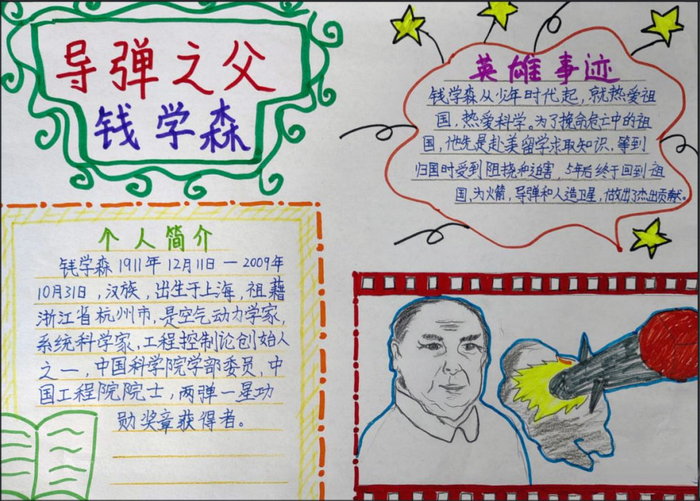 导弹之父
钱学森
英雄事迹
钱学森从少年时代起，就热爱祖
国，热爱科学。为了挽救危亡中的祖
国，他先是赴美留学求取知识，等到
归国时受到阻挠和迫害，5年后终于回到祖
国，为火箭，导弹和人造卫星，做出了杰出贡献。
个人简介
钱学森1911年12月11日—2009年
10月31日，汉族，出生于上海，祖籍
浙江省杭州市，是空气动力学家，
系统科学家，工程控制论创始人
之一，中国科学院学部委员，中
国工程院院士，两弹一星功
勋奖章获得者。